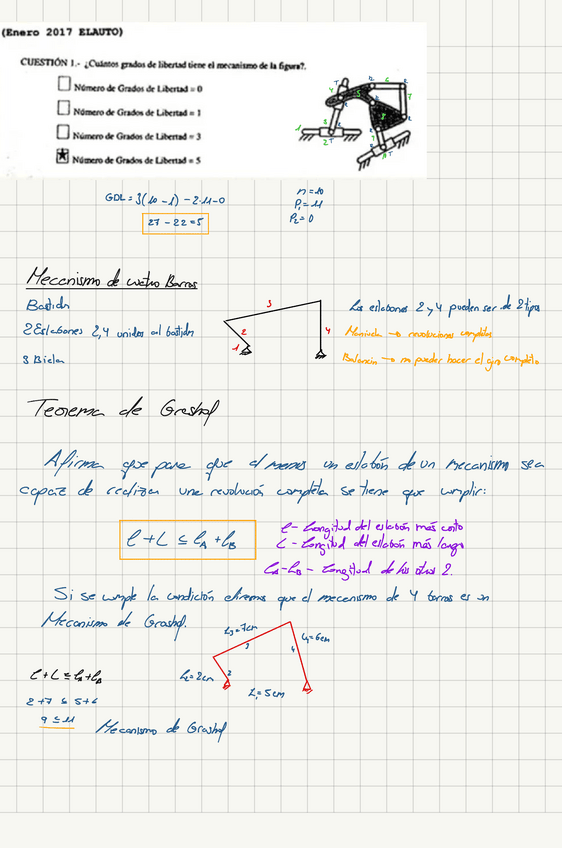 (Enero 2017 ELAUTO)
CUESTIÓN 1.- ¿Cuántos grados de libertad tiene el mecanismo de la figura?.
Número de Grados de Libertad = 0
Número de Grados de Libertad = 1
Número de Grados de Libertad = 3
Número de Grados de Libertad = 5
GDL = 3(10 - 1) - 2·11 - 0
27 - 22 = 5
n = 10
P₁ = 11
P₂ = 0
Mecanismo de cuatro Barras
Bastidor
2 Eslabones 2,4 unidos al bastidor
3 Biela
3
2
1
4
Los eslabones 2 y 4 pueden ser de 2 tipos
Manivela → revoluciones completas
Balancín → no pueder hacer el giro completo
Teorema de Grashof
Afirma que para que al menos un eslabón de un mecanismo sea
capaz de realizar una revolución completa se tiene que cumplir:
l + L ≤ lA + lB
l - Longitud del eslabón más corto
L - Longitud del eslabón más largo
lA - lB - Longitud de los otros 2.
Si se cumple la condición diremos que el mecanismo de 4 barras es un
Mecanismo de Grashof.
L₃ = 7cm
L₄ = 6cm
3
4
L₂ = 2cm
2
L₁ = 5cm
l + L ≤ lA + lB
2 + 7 ≤ 5 + 6
9 ≤ 11
Mecanismo de Grashof